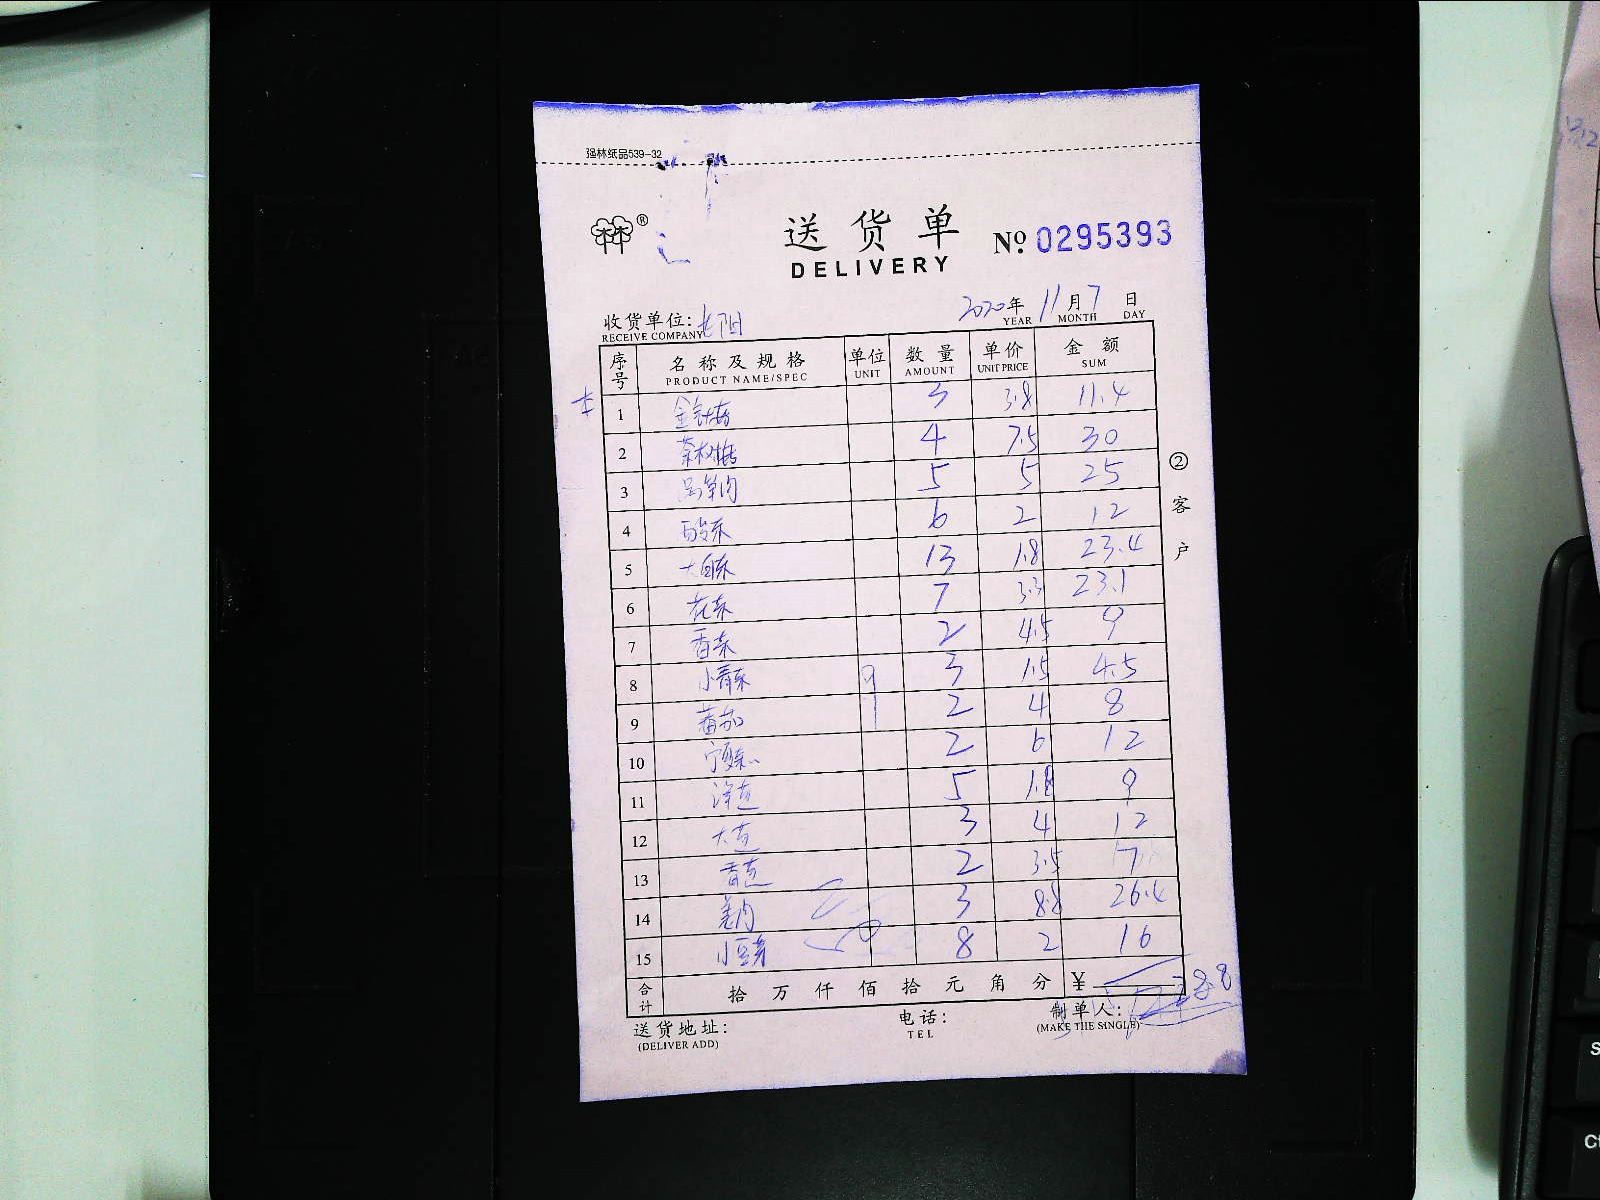 强林纸品539-32
®
送货单 №0295393
DELIVERY
2020年11月7日
YEAR MONTH DAY
收货单位:长阳
RECEIVE COMPANY
序号 名称及规格 单位 数量 单价 金额
PRODUCT NAME/SPEC UNIT AMOUNT UNIT PRICE SUM
1 金针菇 3 3.8 11.4
2 茶树菇 4 7.5 30
3 5 5 25
4 6 2 12
5 大白菜 13 1.8 23.4
6 花菜 7 3.3 23.1
7 香菜 2 4.5 9
8 小青菜 3 1.5 4.5
9 番茄 2 4 8
10 2 6 12
11 洋芋 5 1.8 9
12 3 4 12
13 2 3.5 7
14 3 8.8 26.4
15 小豆芽 8 2 16
合计 拾万仟佰拾元角分 ¥
送货地址: 电话: 制单人:
(DELIVER ADD) TEL (MAKE THE SINGLE)
②客户